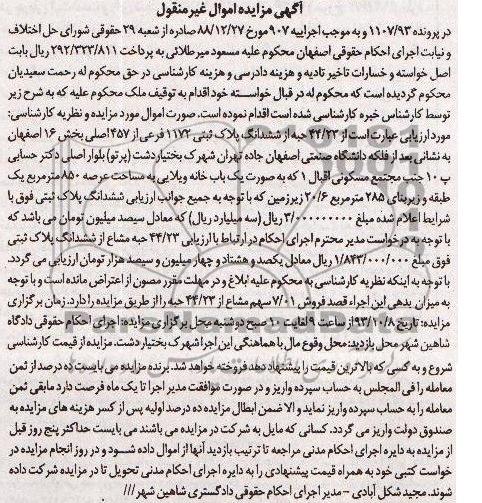 آگهی مزایده اموال غیرمنقول
در پرونده 1107/93 و به موجب اجراییه 907 مورخ 88/12/27 صادره از شعبه 29 حقوقی شورای حل اختلاف
و نیابت اجرای احکام حقوقی اصفهان محکوم علیه مسعود میرطلائی به پرداخت 292/323/811 ریال بابت
اصل خواسته و خسارات تاخیر تادیه و هزینه دادرسی و هزینه کارشناسی در حق محکوم له رحمت سعیدیان
محکوم گردیده است که محکوم له در قبال خواسته خود اقدام به توقیف ملک محکوم علیه که به شرح زیر
توسط کارشناس خبره کارشناسی شده است اقدام نموده است. صورت اموال مورد مزایده و نظریه کارشناسی:
مورد ارزیابی عبارت است از 44/23 حبه از ششدانگ پلاک ثبتی 1172 فرعی از 457 اصلی بخش 16 اصفهان
به نشانی بعد از فلکه دانشگاه صنعتی اصفهان جاده تهران شهرک بختیاردشت (پرتو) بلوار اصلی دکتر حسابی
پ 10 جنب مجتمع مسکونی اقبال 1 که به صورت یک باب خانه ویلایی به مساحت عرصه 850 مترمربع یک
طبقه و زیربنای 285 مترمربع 20/6 زیرزمین که با توجه به جمیع جوانب ارزیابی ششدانگ پلاک ثبتی فوق با
شرایط اعلام شده مبلغ 3/000000000 ریال (سه میلیارد ریال) که معادل سیصد میلیون تومان می باشد که
با توجه به درخواست مدیر محترم اجرای احکام در ارتباط با ارزیابی 44/23 حبه مشاع از ششدانگ پلاک ثبتی
فوق مبلغ 1/843/000/000 ریال معادل یکصد و هشتاد و چهار میلیون و سیصد هزار تومان ارزیابی می گردد.
با توجه به اینکه نظریه کارشناسی به محکوم علیه ابلاغ و در مهلت مقرر مصون از اعتراض مانده است و با توجه
به میزان بدهی این اجراء قصد فروش 7/01 سهم مشاع از 44/23 حبه را از طریق مزایده را دارد. زمان برگزاری
مزایده: تاریخ 93/10/8 از ساعت 9 لغایت 10 صبح دوشنبه محل برگزاری مزایده: اجرای احکام حقوقی دادگاه
شاهین شهر محل بازدید: محل وقوع مال با هماهنگی این اجرا شهرک بختیاردشت. مزایده از قیمت کارشناسی
شروع و به کسی که بالاترین قیمت را پیشنهاد دهد فروخته خواهد شد. برنده مزایده می بایست ده درصد از ثمن
معامله را فی المجلس به حساب سپرده واریز و در صورت موافقت مدیر اجرا تا یک ماه فرصت دارد مابقی ثمن
معامله را به حساب سپرده واریز نماید و الا ضمن ابطال مزایده ده درصد اولیه پس از کسر هزینه های مزایده به
صندوق دولت واریز می گردد. کسانی که مایل به شرکت در مزایده می باشند می بایست حداکثر پنج روز قبل
از مزایده به دایره اجرای احکام مدنی مراجعه تا ترتیب بازدید آنها از اموال داده شود و در روز انجام مزایده در
خواست کتبی خود به همراه قیمت پیشنهادی را به دایره اجرای احکام مدنی تحویل تا در مزایده شرکت داده
شوند. مجید شکل آبادی - مدیر اجرای احکام حقوقی دادگستری شاهین شهر ///